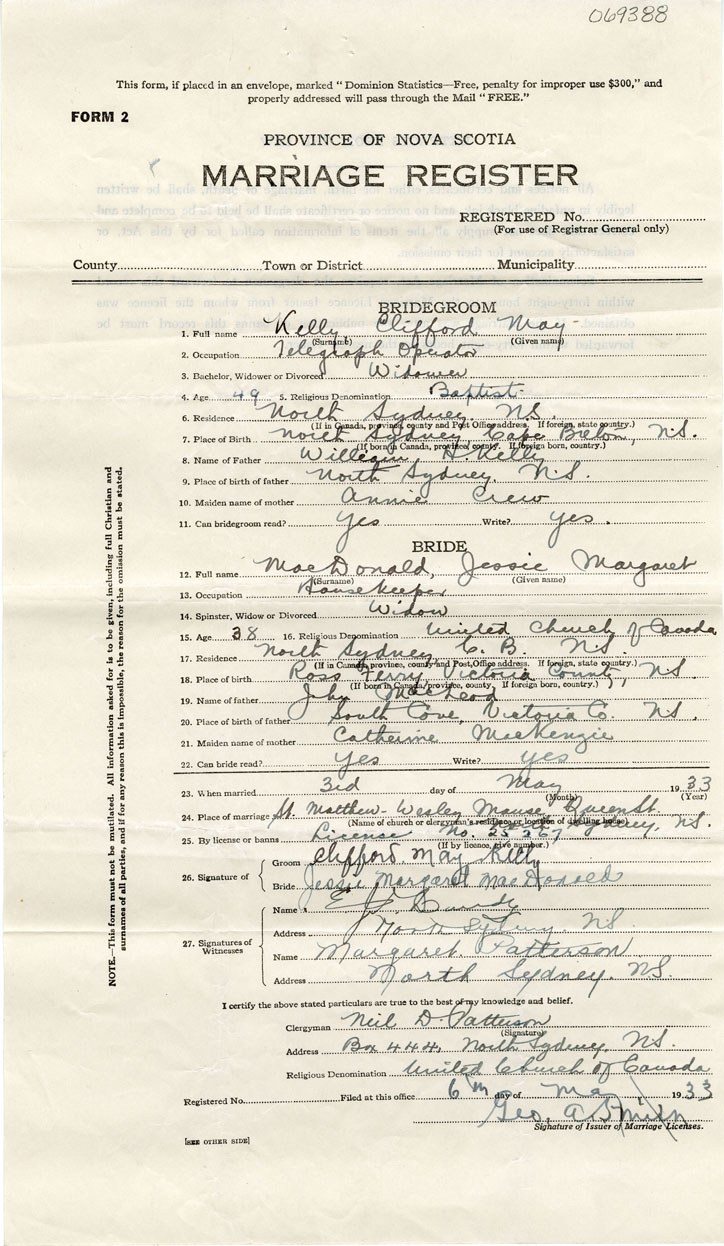 069388
This form, if placed in an envelope, marked "Dominion Statistics—Free, penalty for improper use $300," and
properly addressed will pass through the Mail "FREE."
FORM 2
PROVINCE OF NOVA SCOTIA
MARRIAGE REGISTER
REGISTERED No.
(For use of Registrar General only)
County Town or District Municipality
BRIDEGROOM
1. Full name Kelly Clifford May
(Surname) (Given name)
2. Occupation Telegraph Operator
3. Bachelor, Widower or Divorced Widower
4. Age 49 5. Religious Denomination Baptist
6. Residence North Sydney N.S.
(If in Canada, province, county and Post Office address. If foreign, state country.)
7. Place of Birth North Sydney Cape Breton, N.S.
(If born in Canada, province, county. If foreign born, country.)
8. Name of Father William H. Kelly
9. Place of birth of father North Sydney, N.S.
10. Maiden name of mother Annie Crew
11. Can bridegroom read? Yes Write? Yes.
BRIDE
12. Full name MacDonald, Jessie Margaret
(Surname) (Given name)
13. Occupation Housekeeper
14. Spinster, Widow or Divorced Widow
15. Age 38 16. Religious Denomination United Church of Canada
17. Residence North Sydney, C.B. N.S.
(If in Canada, province, county and Post Office address. If foreign, state country.)
18. Place of birth Ross Ferry, Victoria County, N.S.
(If born in Canada, province, county. If foreign born, country.)
19. Name of father John MacLeod
20. Place of birth of father South Cove, Victoria Co. N.S.
21. Maiden name of mother Catherine MacKenzie
22. Can bride read? Yes Write? Yes
23. When married 3rd day of May 1933
(Month) (Year)
24. Place of marriage St. Matthew-Wesley Manse, Queen St.
(Name of church or clergyman's residence or location of dwelling house) North Sydney, N.S.
25. By license or banns License No.
(If by licence, give number.)
26. Signature of Groom Clifford May Kelly
Bride Jessie Margaret MacDonald
27. Signatures of Witnesses
Name
Address North Sydney NS
Name Margaret Patterson
Address North Sydney. NS.
I certify the above stated particulars are true to the best of my knowledge and belief.
Clergyman Neil D. Patterson
(Signature)
Address Box 444, North Sydney, NS.
Religious Denomination United Church of Canada
Registered No. Filed at this office 6th day of May 1933
Geo. A.
Signature of Issuer of Marriage Licenses.
[SEE OTHER SIDE]
NOTE.—This form must not be mutilated. All information asked for is to be given, including full Christian and
surnames of all parties, and if for any reason this is impossible, the reason for the omission must be stated.